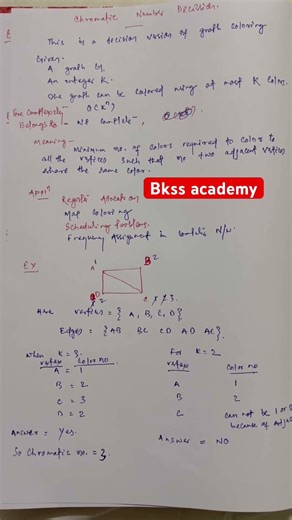 Chromatic Number Decision.
This is a decision version of graph coloring
Given.
A graph G.
An integer K.
One graph can be colored using at most K color.
Time Complexity - O(K^n)
Belongs to - NP complete,
Meaning - Minimum no. of colors required to color
all the vertices such that no two adjacent vertices
share the same color.
Bkss academy
Appl^n
Register Allocation
Map Coloring
Scheduling Problem.
Frequency Assignment in N/w.
Ex
A 1 B 2
D 2 C 3.
vertices = { A, B, C, D }
Edges = { AB BC CD AD AC }
When K = 3.
vertex Color no
A = 1
B = 2
C = 3
D = 2
Answer = Yes.
So Chromatic no. = 3.
For K = 2
vertex Color no
A 1
B 2
C can not be 1 or
because of
Answer = NO